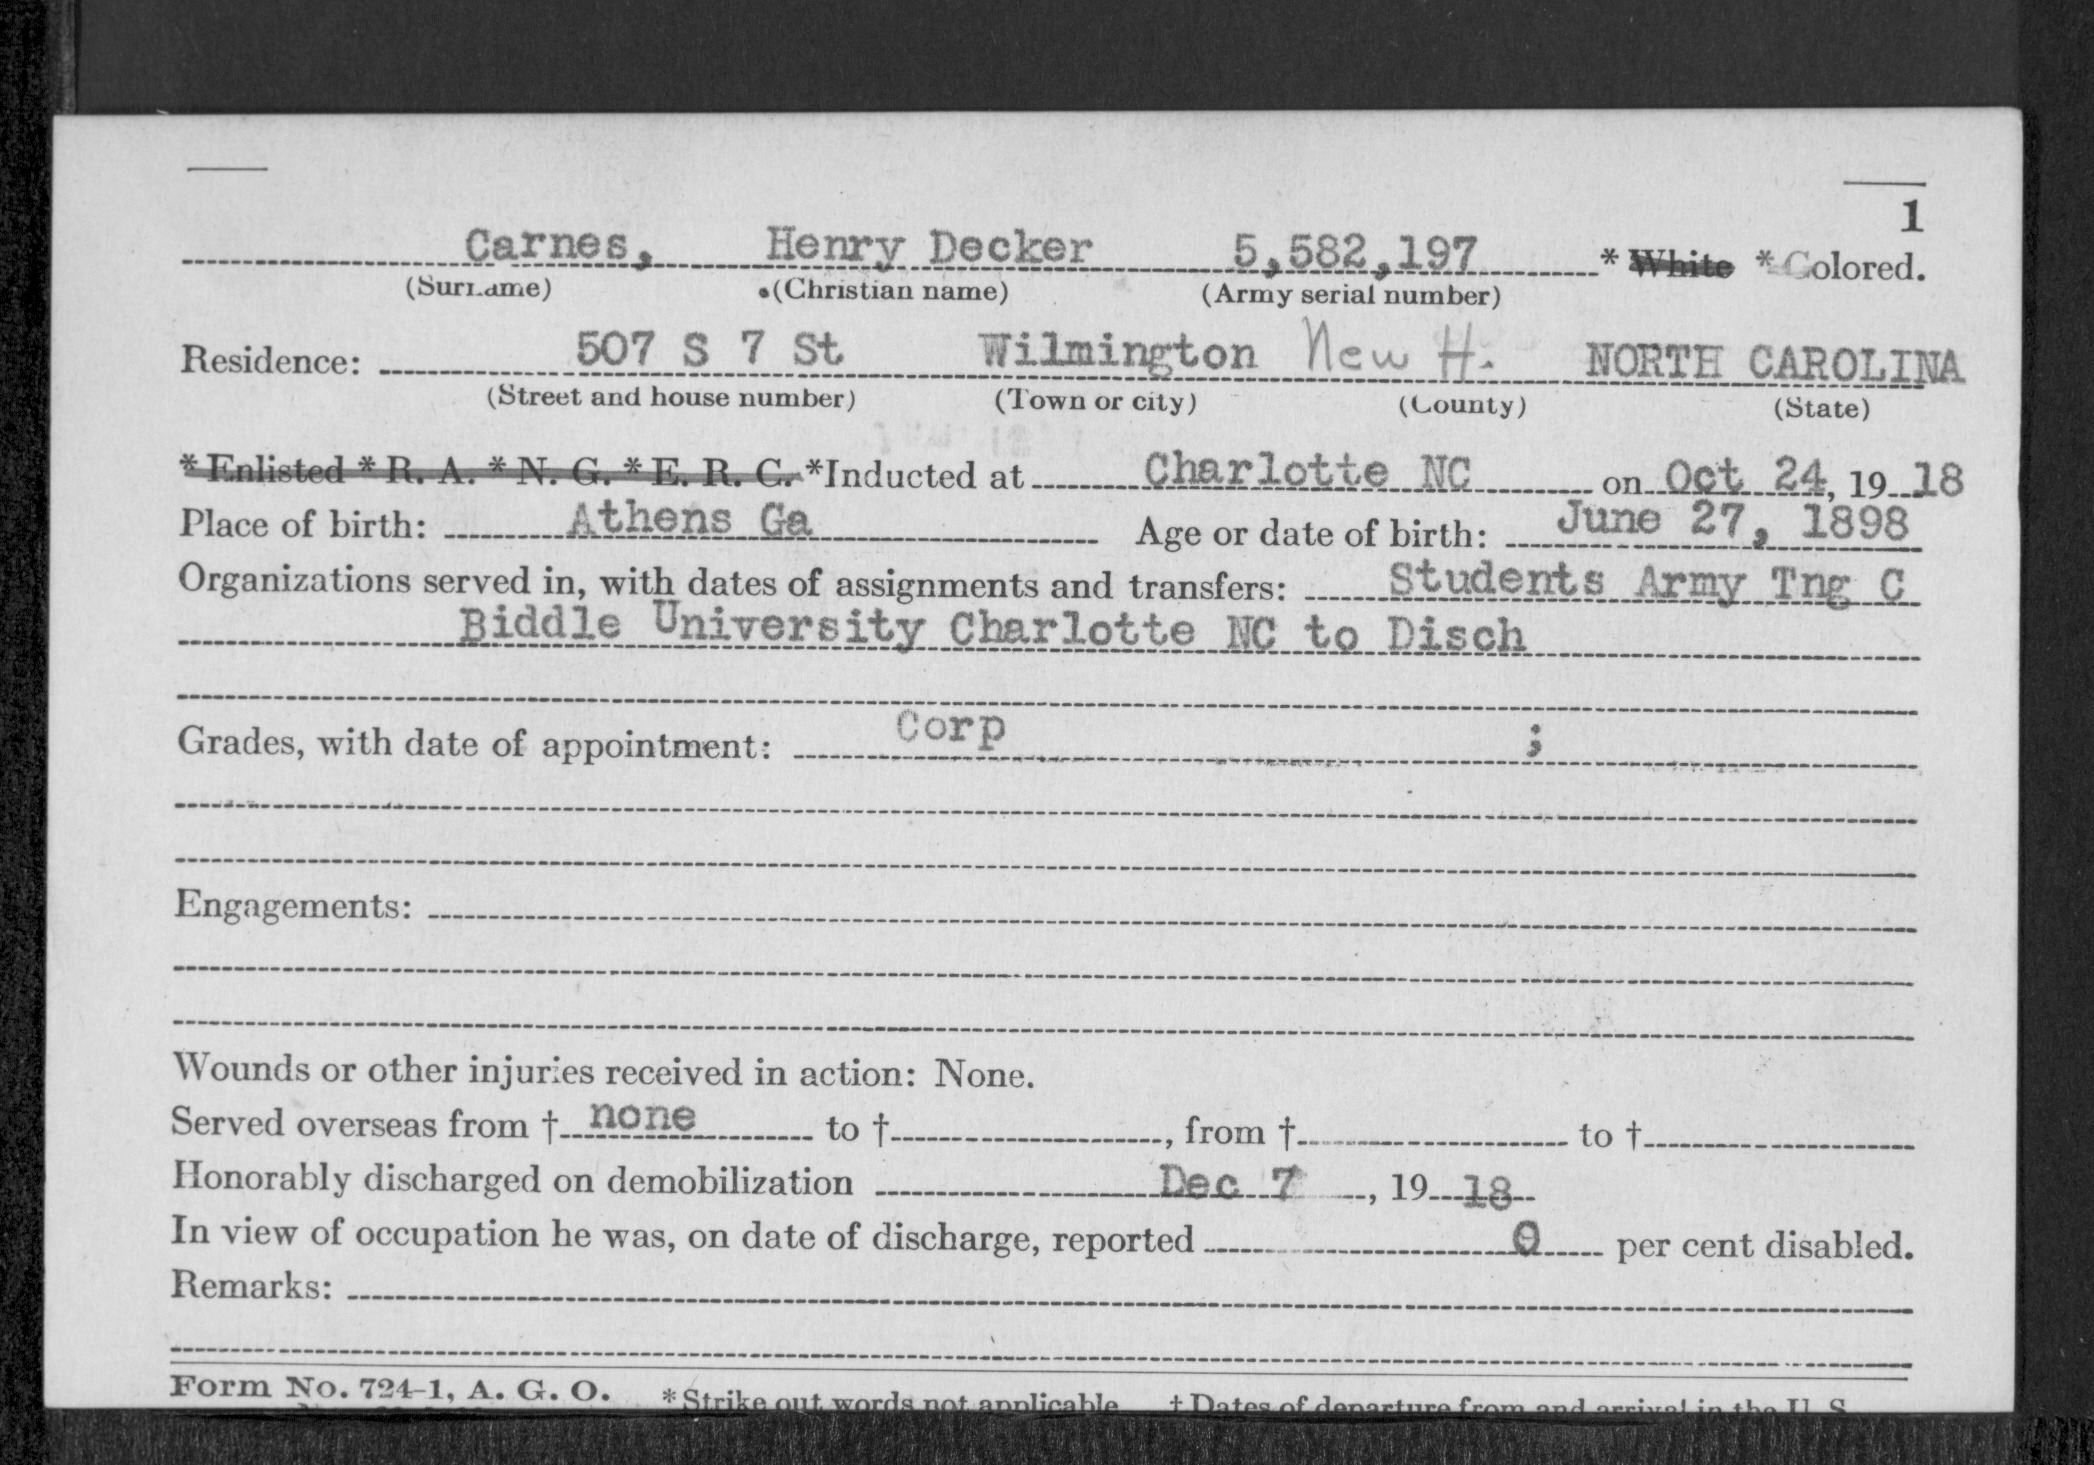 1
Carnes, Henry Decker 5,582,197 * White * Colored.
(Surname) (Christian name) (Army serial number)
Residence: 507 S 7 St Wilmington New H. NORTH CAROLINA
(Street and house number) (Town or city) (County) (State)
* Enlisted * R. A. * N. G. * E. R. C. *Inducted at Charlotte NC on Oct 24, 19 18
Place of birth: Athens Ga Age or date of birth: June 27, 1898
Organizations served in, with dates of assignments and transfers: Students Army Tng C
Biddle University Charlotte NC to Disch
Grades, with date of appointment: Corp ;
Engagements:
Wounds or other injuries received in action: None.
Served overseas from † none to †, from † to †
Honorably discharged on demobilization Dec 7, 19 18
In view of occupation he was, on date of discharge, reported 0 per cent disabled.
Remarks:
Form No. 724-1, A. G. O. *Strike out words not applicable † Dates of departure from and arrival in the U. S.